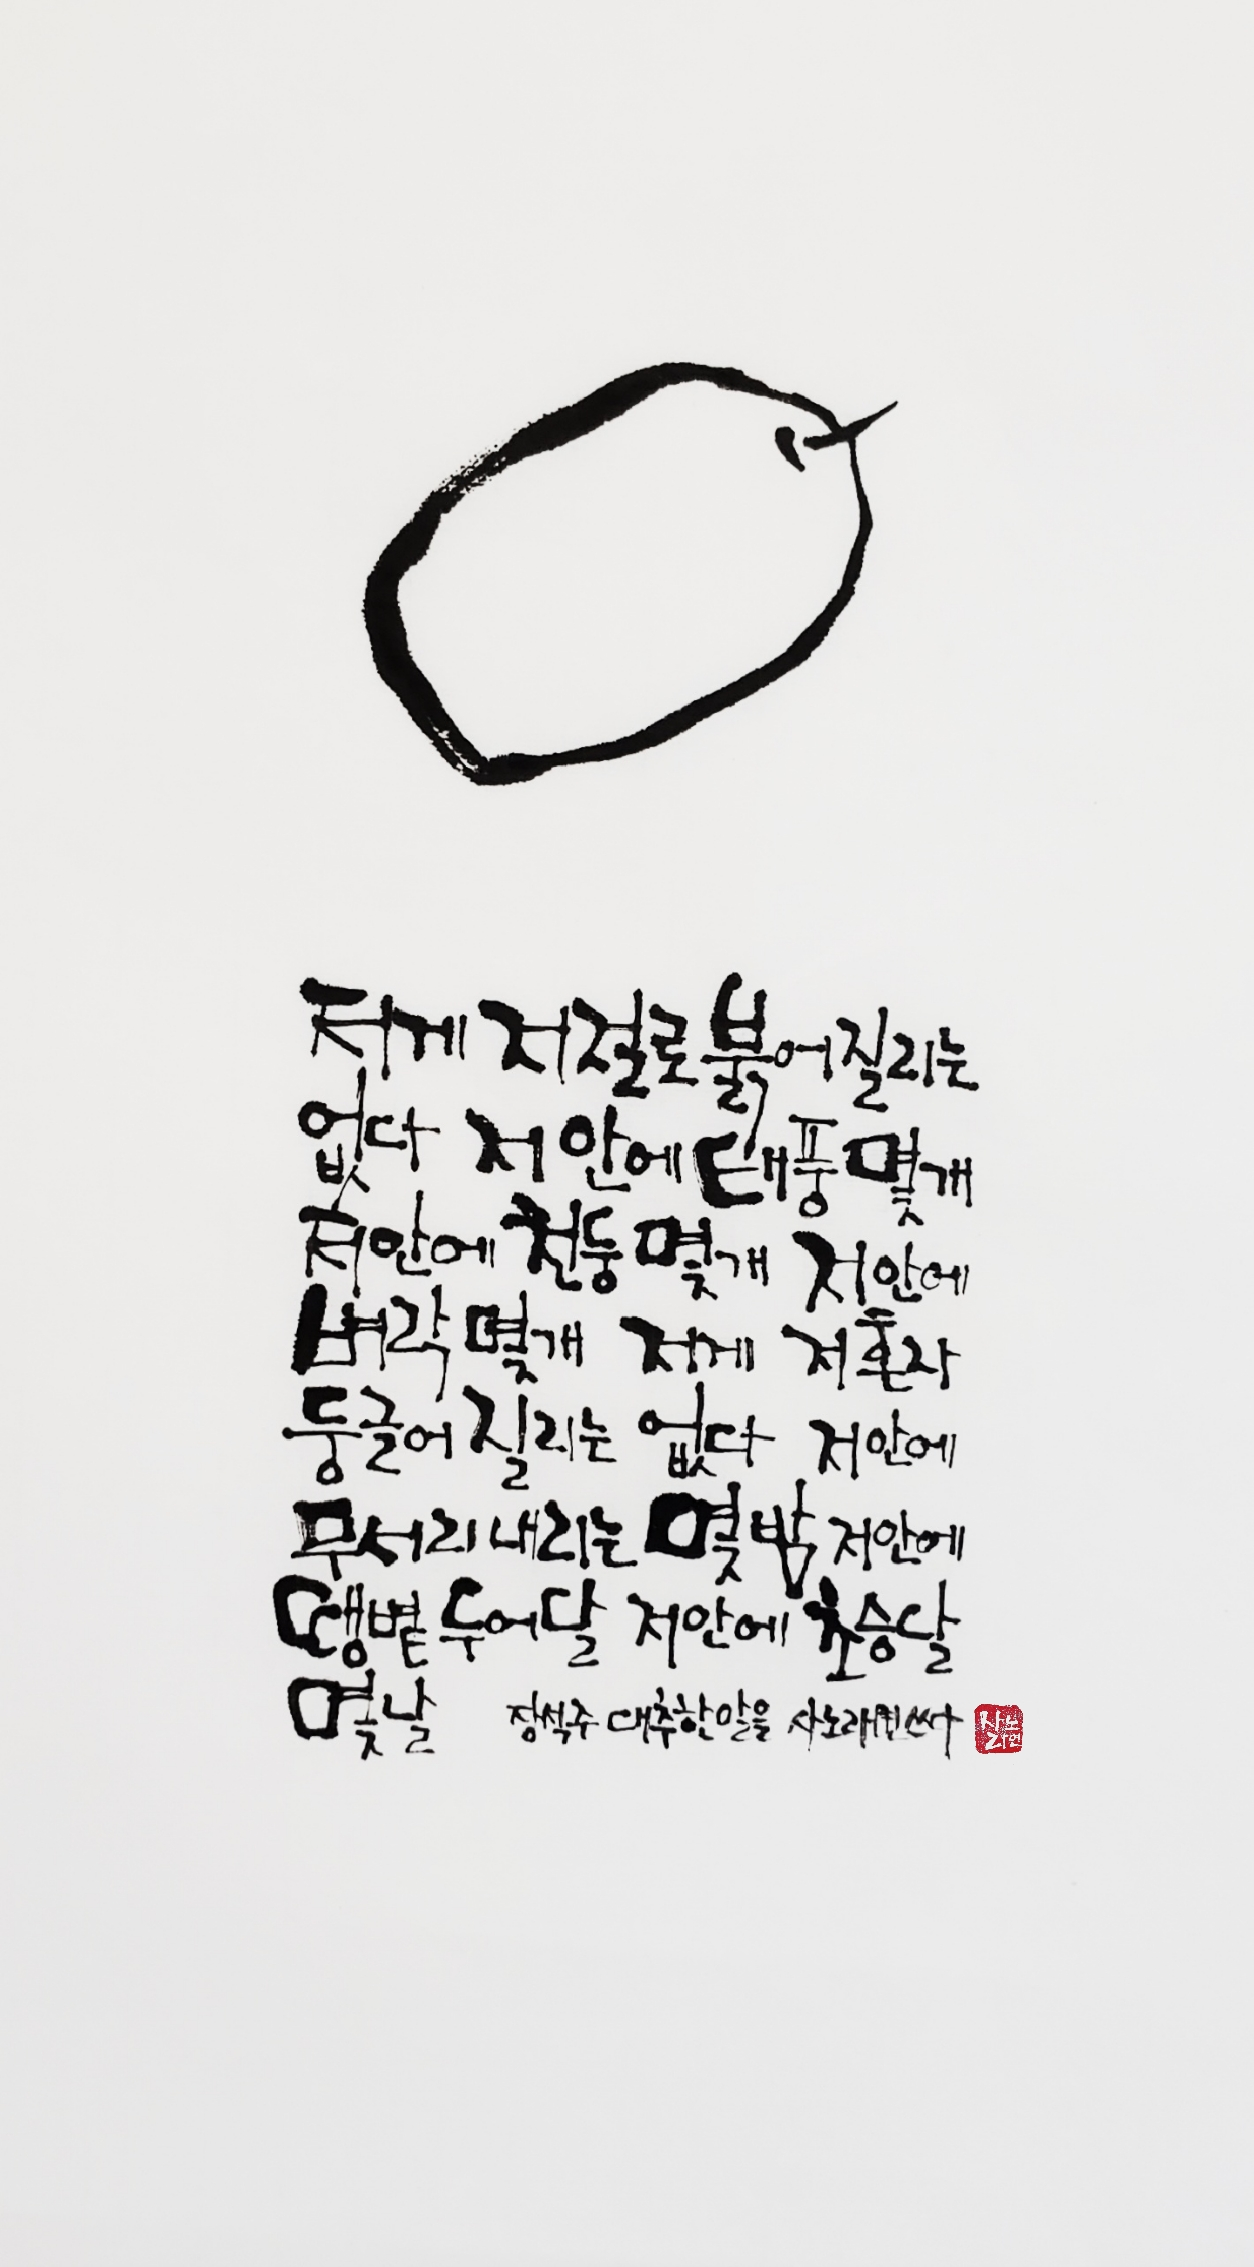 저게 저절로 붉어질리는
없다 저 안에 태풍 몇개
저안에 천둥 몇개 저안에
벼락 몇개 저게 저 혼자
둥글어 질리는 없다 저안에
무서리 내리는 몇밤 저안에
땡볕 두어달 저안에 초승달
몇날 장석주 대추한알을 쓰다